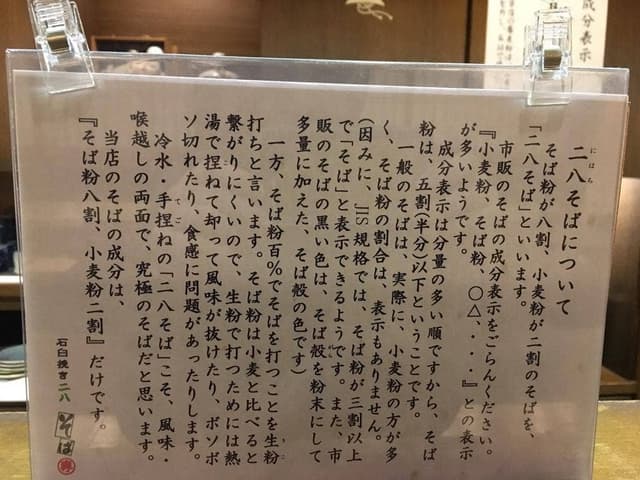 二八そばについて
にはち
そば粉が八割、小麦粉が二割のそばを、
「二八そば」といいます。
市販のそばの成分表示をごらんください。
『小麦粉、そば粉、〇△、・・・』との表示
が多いようです。
成分表示は分量の多い順ですから、そば
粉は、五割(半分)以下ということです。
一般のそばは、実際に、小麦粉の方が多
く、そば粉の割合は、表示もありません。
(因みに、JIS規格では、そば粉が三割以上
で「そば」と表示できるようです。また、市
販のそばの黒い色は、そば殻を粉末にして
多量に加えた、そば殻の色です)
一方、そば粉百%でそばを打つことを生粉
打ちと言います。そば粉は小麦と比べると
繋がりにくいので、生粉で打つためには熱
湯で捏ねて却って風味が抜けたり、ボソボ
ソ切れたり、食感に問題があったりします。
冷水・手捏ねの「二八そば」こそ、風味・
喉越しの両面で、究極のそばだと思います。
当店のそばの成分は、
『そば粉八割、小麦粉二割』だけです。
石臼挽き二八
そば
成分表示